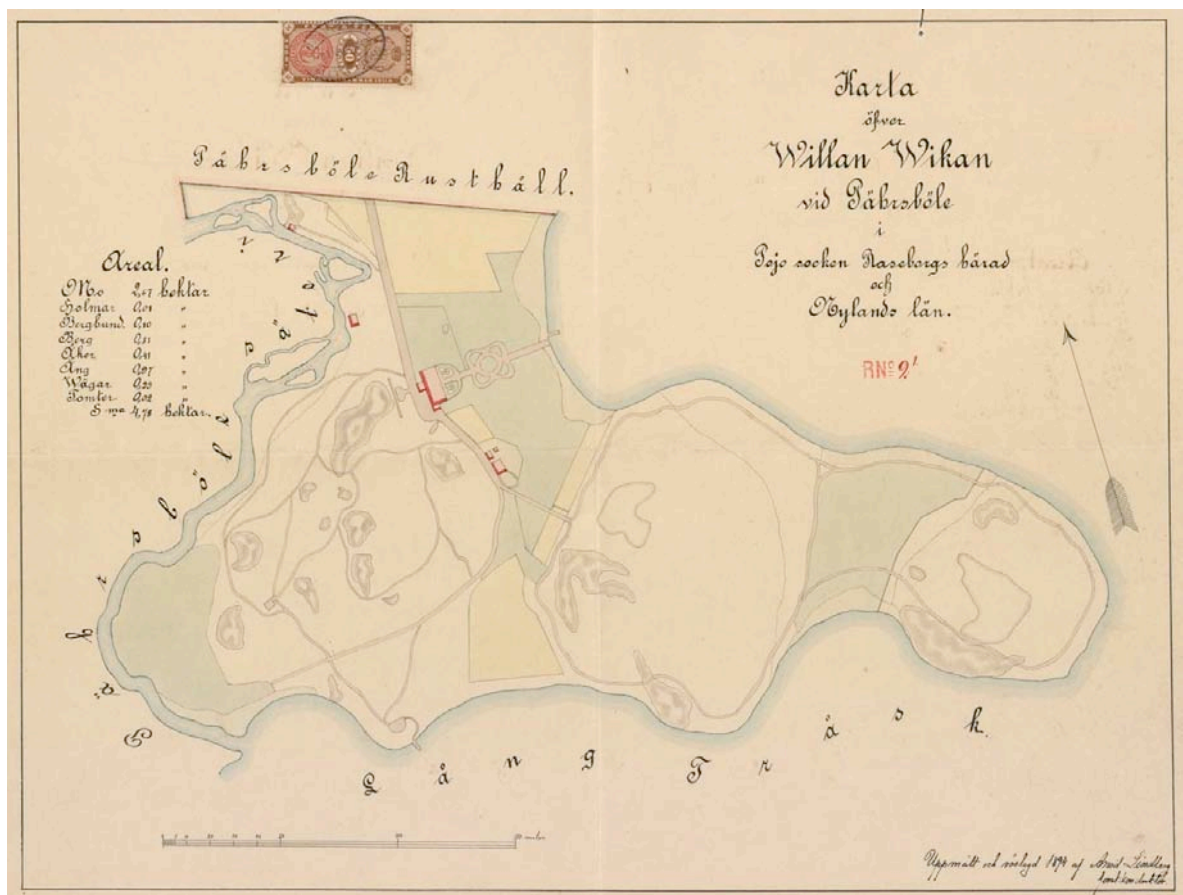 Karta
öfver
Willan Wikan
vid Påhrsböle
i
Pojo socken Raseborgs härad
och
Nylands län.
RNº 2¹
Påhrsböle Rusthåll.
Areal.
Mo 2,47 hektar
Holmar 0,01 "
Bergbund. 0,10 "
Berg 0,51 "
Åker 0,41 "
Äng 0,97 "
Wägar 0,23 "
Tomter 0,02 "
S:ma 4,78 hektar.
Lång Träsk.
Uppmätt och 1894 af Arvid Lindberg